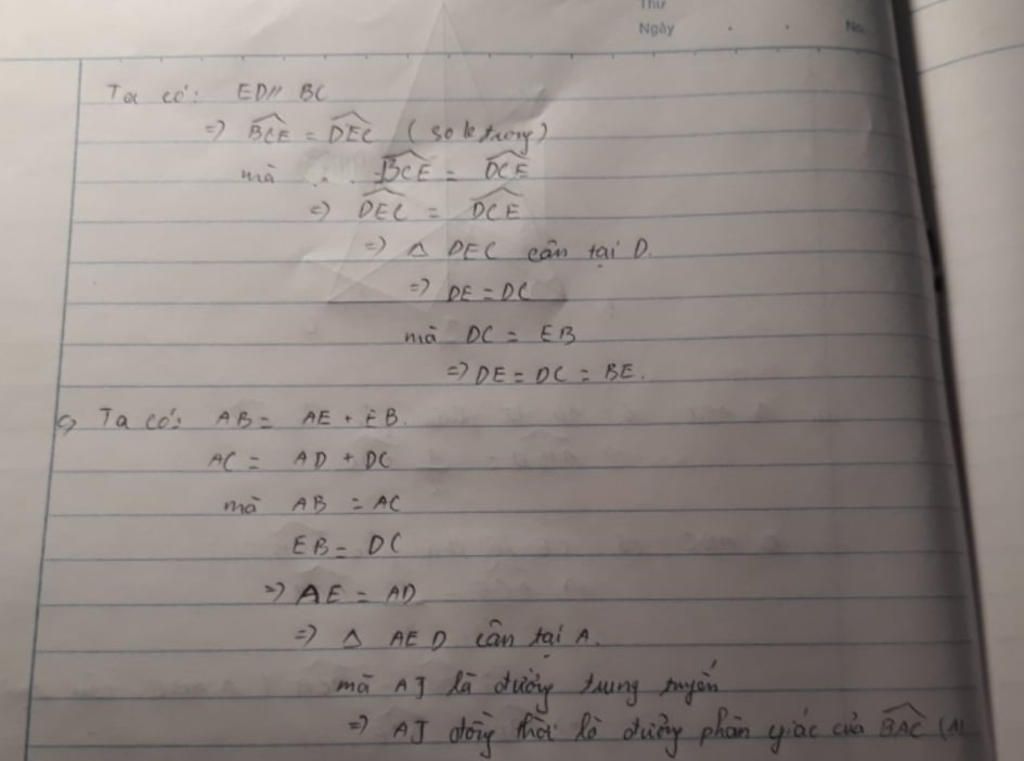 Thứ
Ngày . . No.
Ta có: ED // BC
=> \widehat{BCE} = \widehat{DEC} (so le trong)
mà \widehat{BCE} = \widehat{DCE}
=> \widehat{DEC} = \widehat{DCE}
=> Δ DEC cân tại D.
=> DE = DC
mà DC = EB
=> DE = DC = BE.
c, Ta có: AB = AE + EB.
AC = AD + DC
mà AB = AC
EB = DC
=> AE = AD
=> Δ AED cân tại A.
mà AJ là đường trung tuyến
=> AJ đồng thời là đường phân giác của \widehat{BAC} (1)